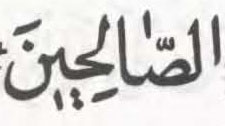 الصّٰالِحِينَ